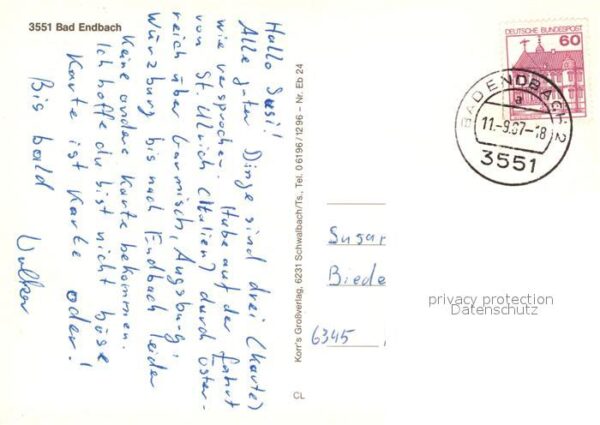 3551 Bad Endbach
Hallo Susi!
Alle guten Dinge sind drei (Karte)
wie versprochen. Habe auf der Fahrt
von St. Ulrich (Italien) durch Öster-
reich über Garmisch, Augsburg,
Würzburg bis nach Endbach leider
keine andere Karte bekommen.
Ich hoffe du bist nicht böse
Karte ist Karte oder!
Bis bald
Volker
Korr's Großverlag, 6231 Schwalbach/Ts., Tel. 06196/1296 - Nr. Eb 24
CL
DEUTSCHE BUNDESPOST
60
BAD ENDBACH 2
a
11.-9.87-18
3551
Susan
Biede
6345
privacy protection
Datenschutz